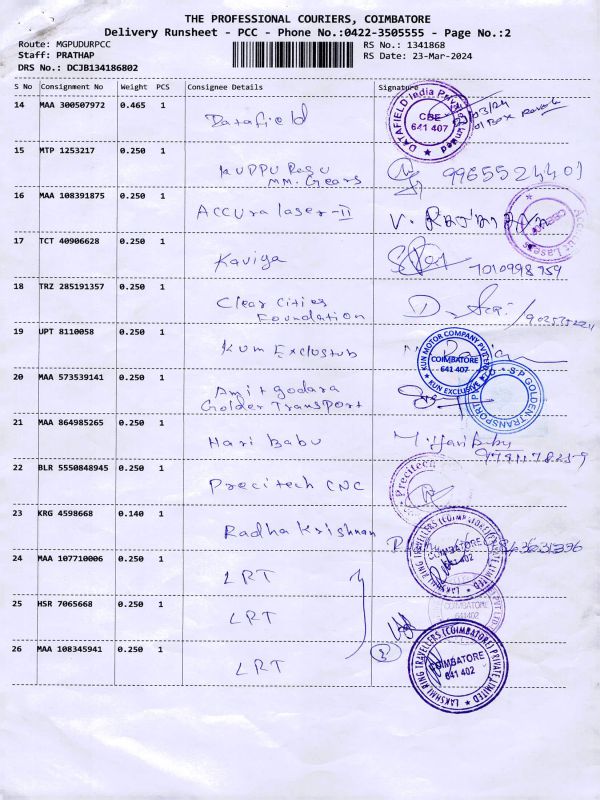 THE PROFESSIONAL COURIERS, COIMBATORE
Delivery Runsheet - PCC - Phone No.:0422-3505555 - Page No.:2
Route: MGPUDURPCC RS No.: 1341868
Staff: PRATHAP RS Date: 23-Mar-2024
DRS No.: DCJB134186802
S No Consignment No Weight PCS Consignee Details Signature
14 MAA 300507972 0.465 1 Datafield
DATAFIELD India Private Limited
CBE
641 407
15 MTP 1253217 0.250 1 KUPPU Raju
MM. Gears 9965524401
16 MAA 108391875 0.250 1 ACCUra laser-II V.
17 TCT 40906628 0.250 1 Kaviya
7010998759
18 TRZ 285191357 0.250 1 Clear Cities
Foundation
19 UPT 8110058 0.250 1 KUM Exclusub
KUN MOTOR COMPANY PVT LTD
COIMBATORE
641 407
KUN EXCLUSIVE
20 MAA 573539141 0.250 1 Amit godara
Golden Transport
S P GOLDEN TRANSPORT
21 MAA 864985265 0.250 1 Hari Babu
22 BLR 5550848945 0.250 1 Precitech CNC
Precitech
23 KRG 4598668 0.140 1 Radha Krishnan
24 MAA 107710006 0.250 1 LRT
LAKSHMI RING TRAVELLERS (COIMBATORE) PRIVATE LIMITED
COIMBATORE
641 402
25 HSR 7065668 0.250 1 LRT
COIMBATORE
641402
26 MAA 108345941 0.250 1 LRT 3
LAKSHMI RING TRAVELLERS (COIMBATORE) PRIVATE LIMITED
COIMBATORE
641 402